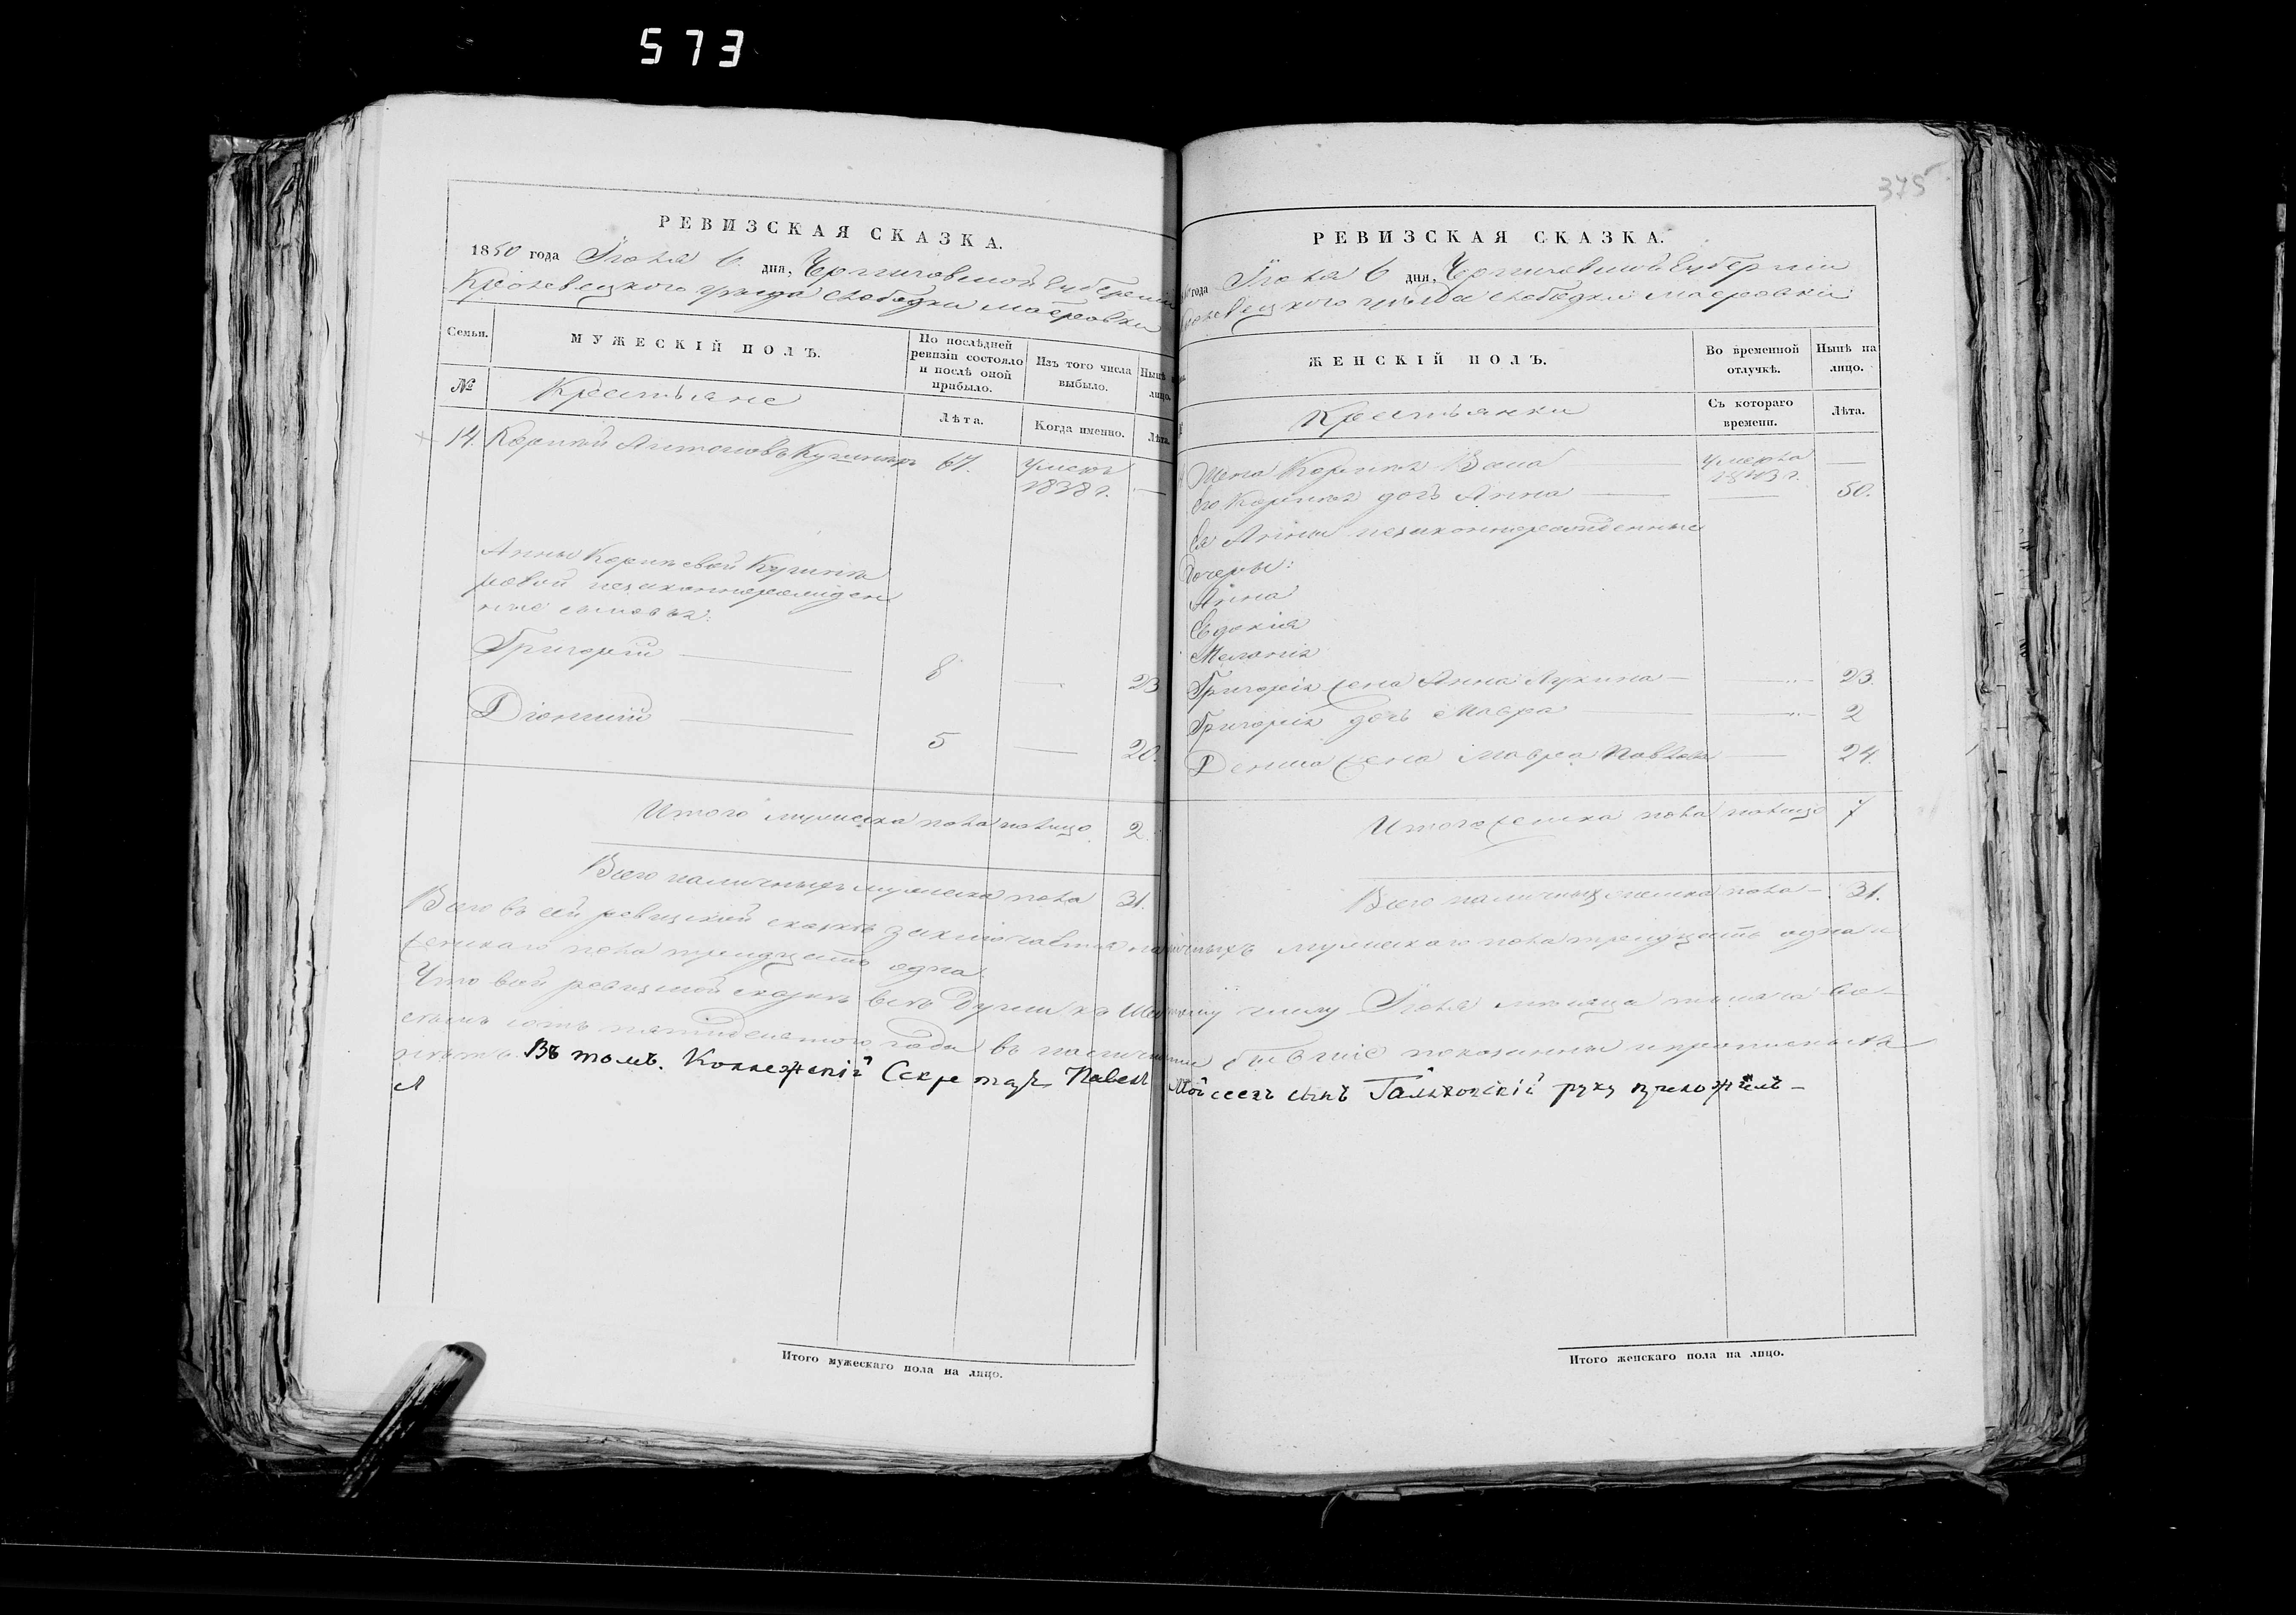 573
375
РЕВИЗСКАЯ СКАЗКА.
1850 года Іюня 6 дня, Черниговской Губерніи
Кролевецкого уезда слободки
Семьи.
МУЖЕСКІЙ ПОЛЪ.
По послѣдней ревизіи состояло и послѣ оной прибыло.
Изъ того числа выбыло.
Нынѣ на лицо.
№
Крестьяне
Лѣта.
Когда именно.
Лѣта.
14. Антоновъ 67. умеръ
1838 г. —
Анны
незаконнорожден
ные сыновья:
Григорій — 8 — 23
Діонисій — 5 — 20.
Итого мужеска пола налицо 2.
Всего наличныхъ мужеска пола 31.
РЕВИЗСКАЯ СКАЗКА.
года Іюня 6 дня, Черниговской Губерніи
уезда слободки
ЖЕНСКІЙ ПОЛЪ.
Во временной отлучкѣ.
Нынѣ на лицо.
Крестьянки
Съ котораго времени.
Лѣта.
Жена умерла —
1843 г.
Его дочь Анна — 50.
Ея Анны незаконнорожденные
дочери:
Анна
Евдокия
Мелания
Григорія жена Анна Лукина — 23.
Григорія дочь Мавра — 2
Дениса жена Мавра Павлова — 24.
Итого женска пола налицо 7
Всего наличныхъ женска пола — 31.
Всего въ сей ревизской сказкѣ заключается наличныхъ мужескаго пола тридцать одна и
женскаго пола тридцать одна.
Что в сей ревизской сказкѣ всѣ души къ шестому числу Іюля месяца тысяча во-
семь сотъ пятидесятого года въ наличности бывшие показаны и прописныхъ
нѣтъ. Въ томъ. Коллежскій Секретарь Павелъ Мойсеевъ сынъ руку приложилъ —
Итого мужескаго пола на лицо.
Итого женскаго пола на лицо.